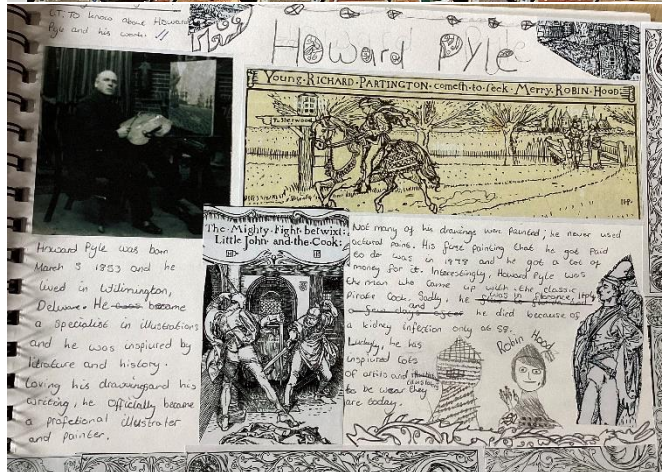 L.T. To know about Howard
Pyle and his work.
Howard Pyle
Young·RICHARD·PARTINGTON·cometh·to·seek·Merry·ROBIN·HOOD:
To Sherwood
HP
The·Mighty·Fight·betwixt·
Little·John·and·the·Cook:
Howard Pyle was born
March 5 1853 and he
lived in Wilinington,
Delware. He became
a specialist in illustrations
and he was inspiured by
literature and history.
Loving his drawings and his
writing, he officially became
a profetional illustrater
and painter.
Not many of his drawings was painted, he never used
actural paints. His first painting that he got paid
to do was in 1878 and he got a lot of
money for it. Interestingly, Howard Pyle was
the man who came up with the classic
Pirate Cock. Sadly, he was in florence, Italy
and a few days after he died because of
a kidney infection only at 58.
Luckly, he has
inspiured lots
of artists and
to be wear they
are today.
Robin Hood